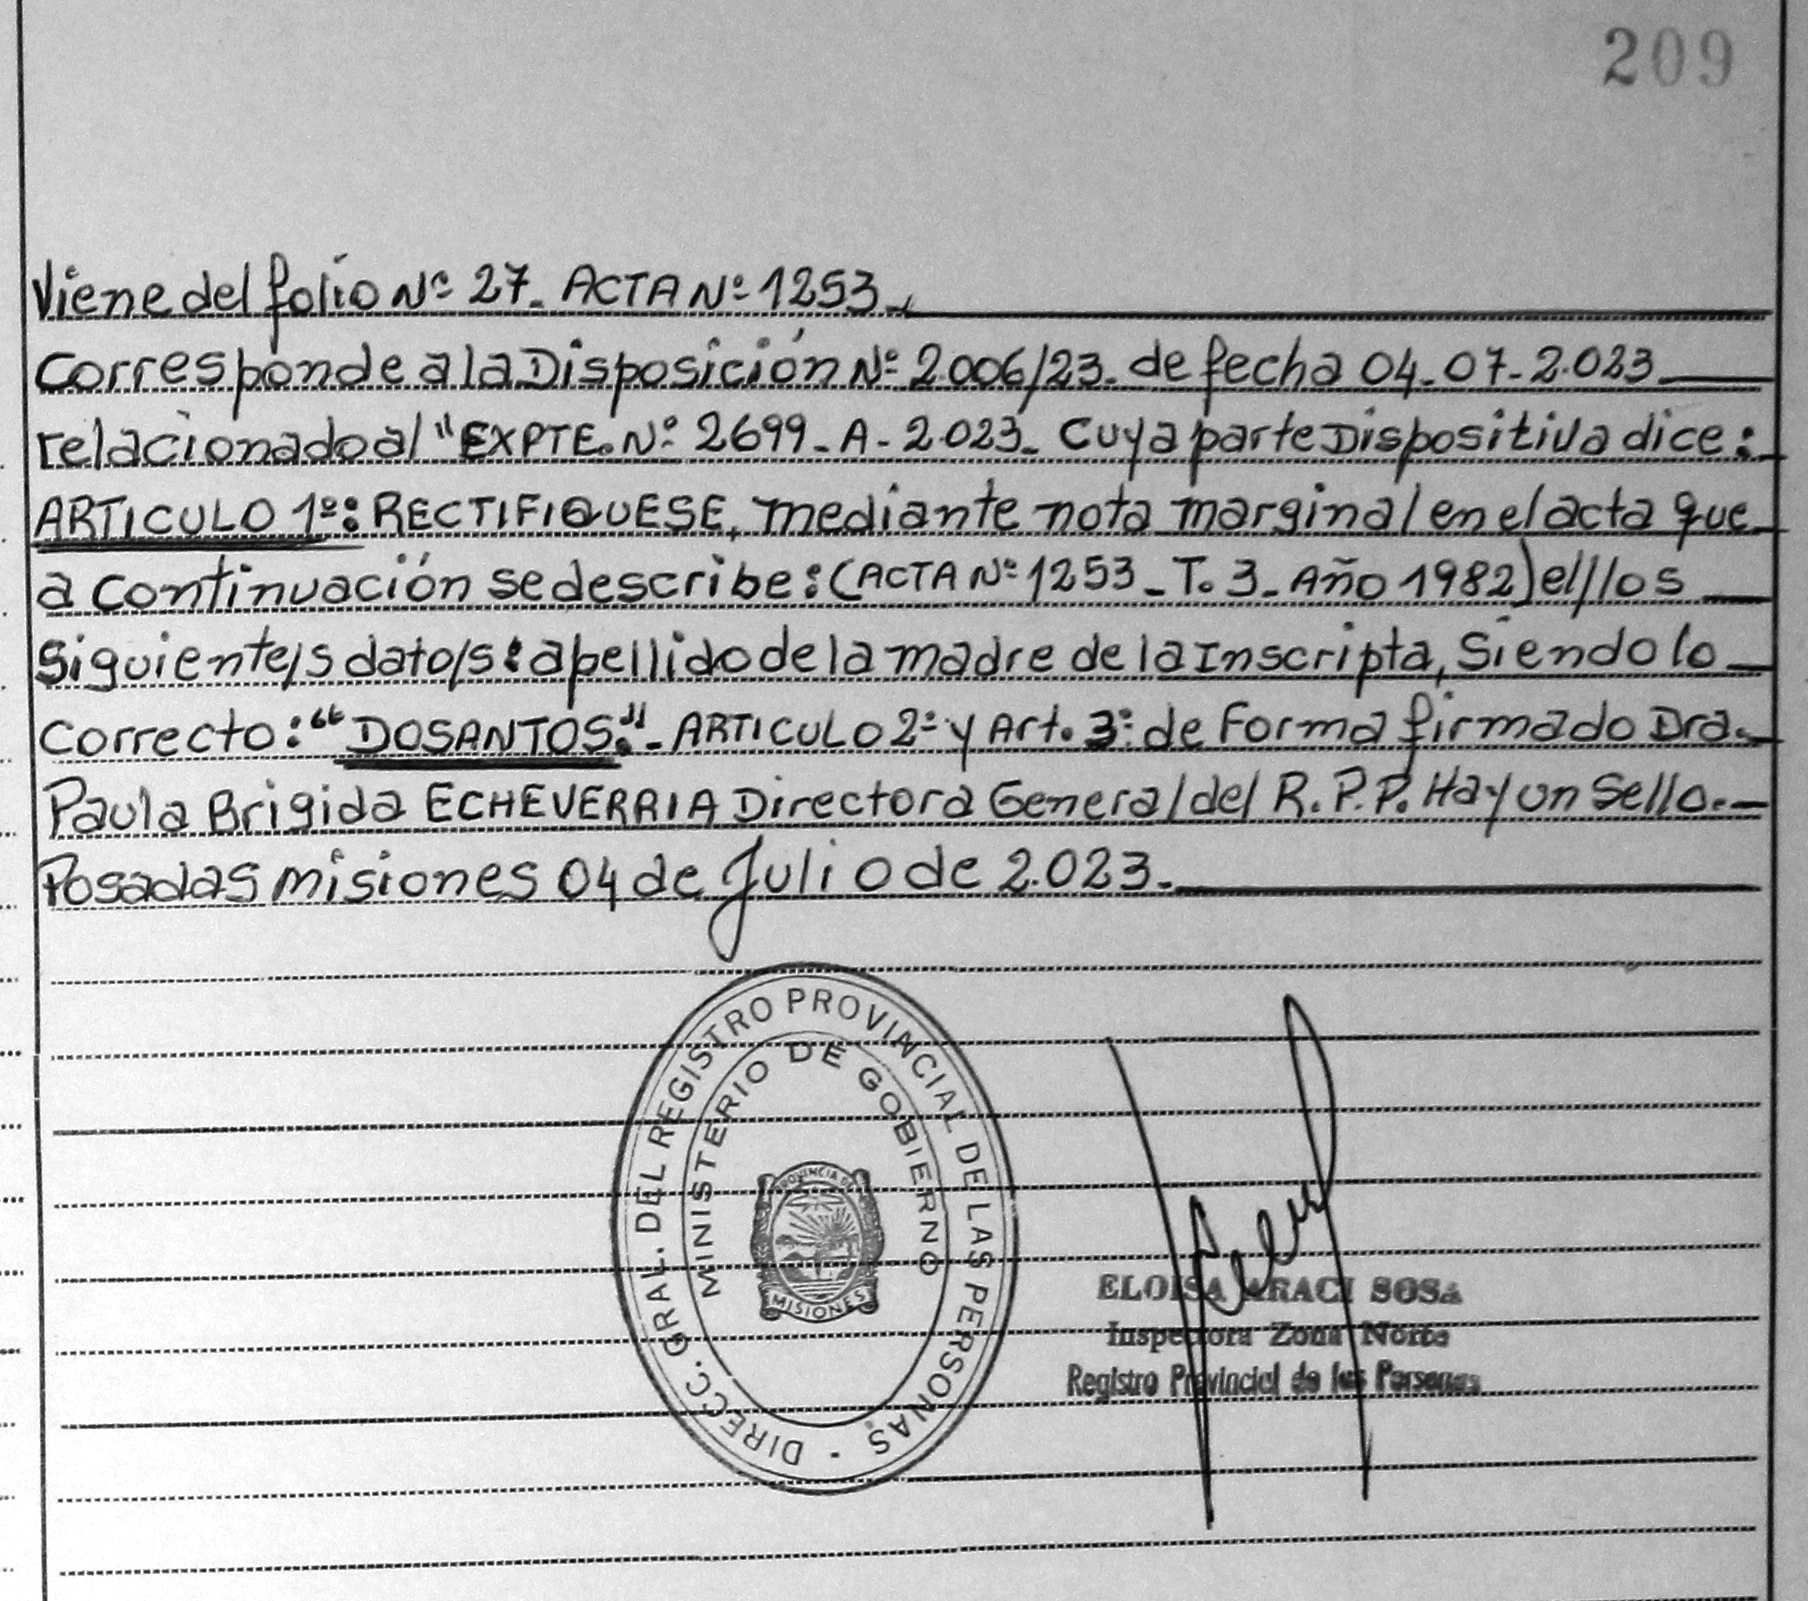 209
Viene del folio Nº 27. ACTA Nº 1253.
Corresponde a la Disposición Nº 2.006/23. de fecha 04-07-2.023
relacionado al "EXPTE. Nº 2699-A-2.023. Cuya parte Dispositiva dice:
ARTICULO 1º: RECTIFIQUESE, mediante nota marginal en el acta que
a continuación se describe: (ACTA Nº 1253-T. 3-Año 1982) el/los
Siguiente/s dato/s: apellido de la madre de la Inscripta, Siendo lo
Correcto: "DOSANTOS." - ARTICULO 2º y Art. 3º de Forma firmado Dra.
Paula Brigida ECHEVERRIA Directora General del R.P.P. Hay un Sello.-
Posadas misiones 04 de Julio de 2.023.
DIRECC. GRAL. DEL REGISTRO PROVINCIAL DE LAS PERSONAS -
MINISTERIO DE GOBIERNO
PROVINCIA DE
MISIONES
ELOISA ARACI SOSA
Inspectora Zona Norte
Registro Provincial de las Personas